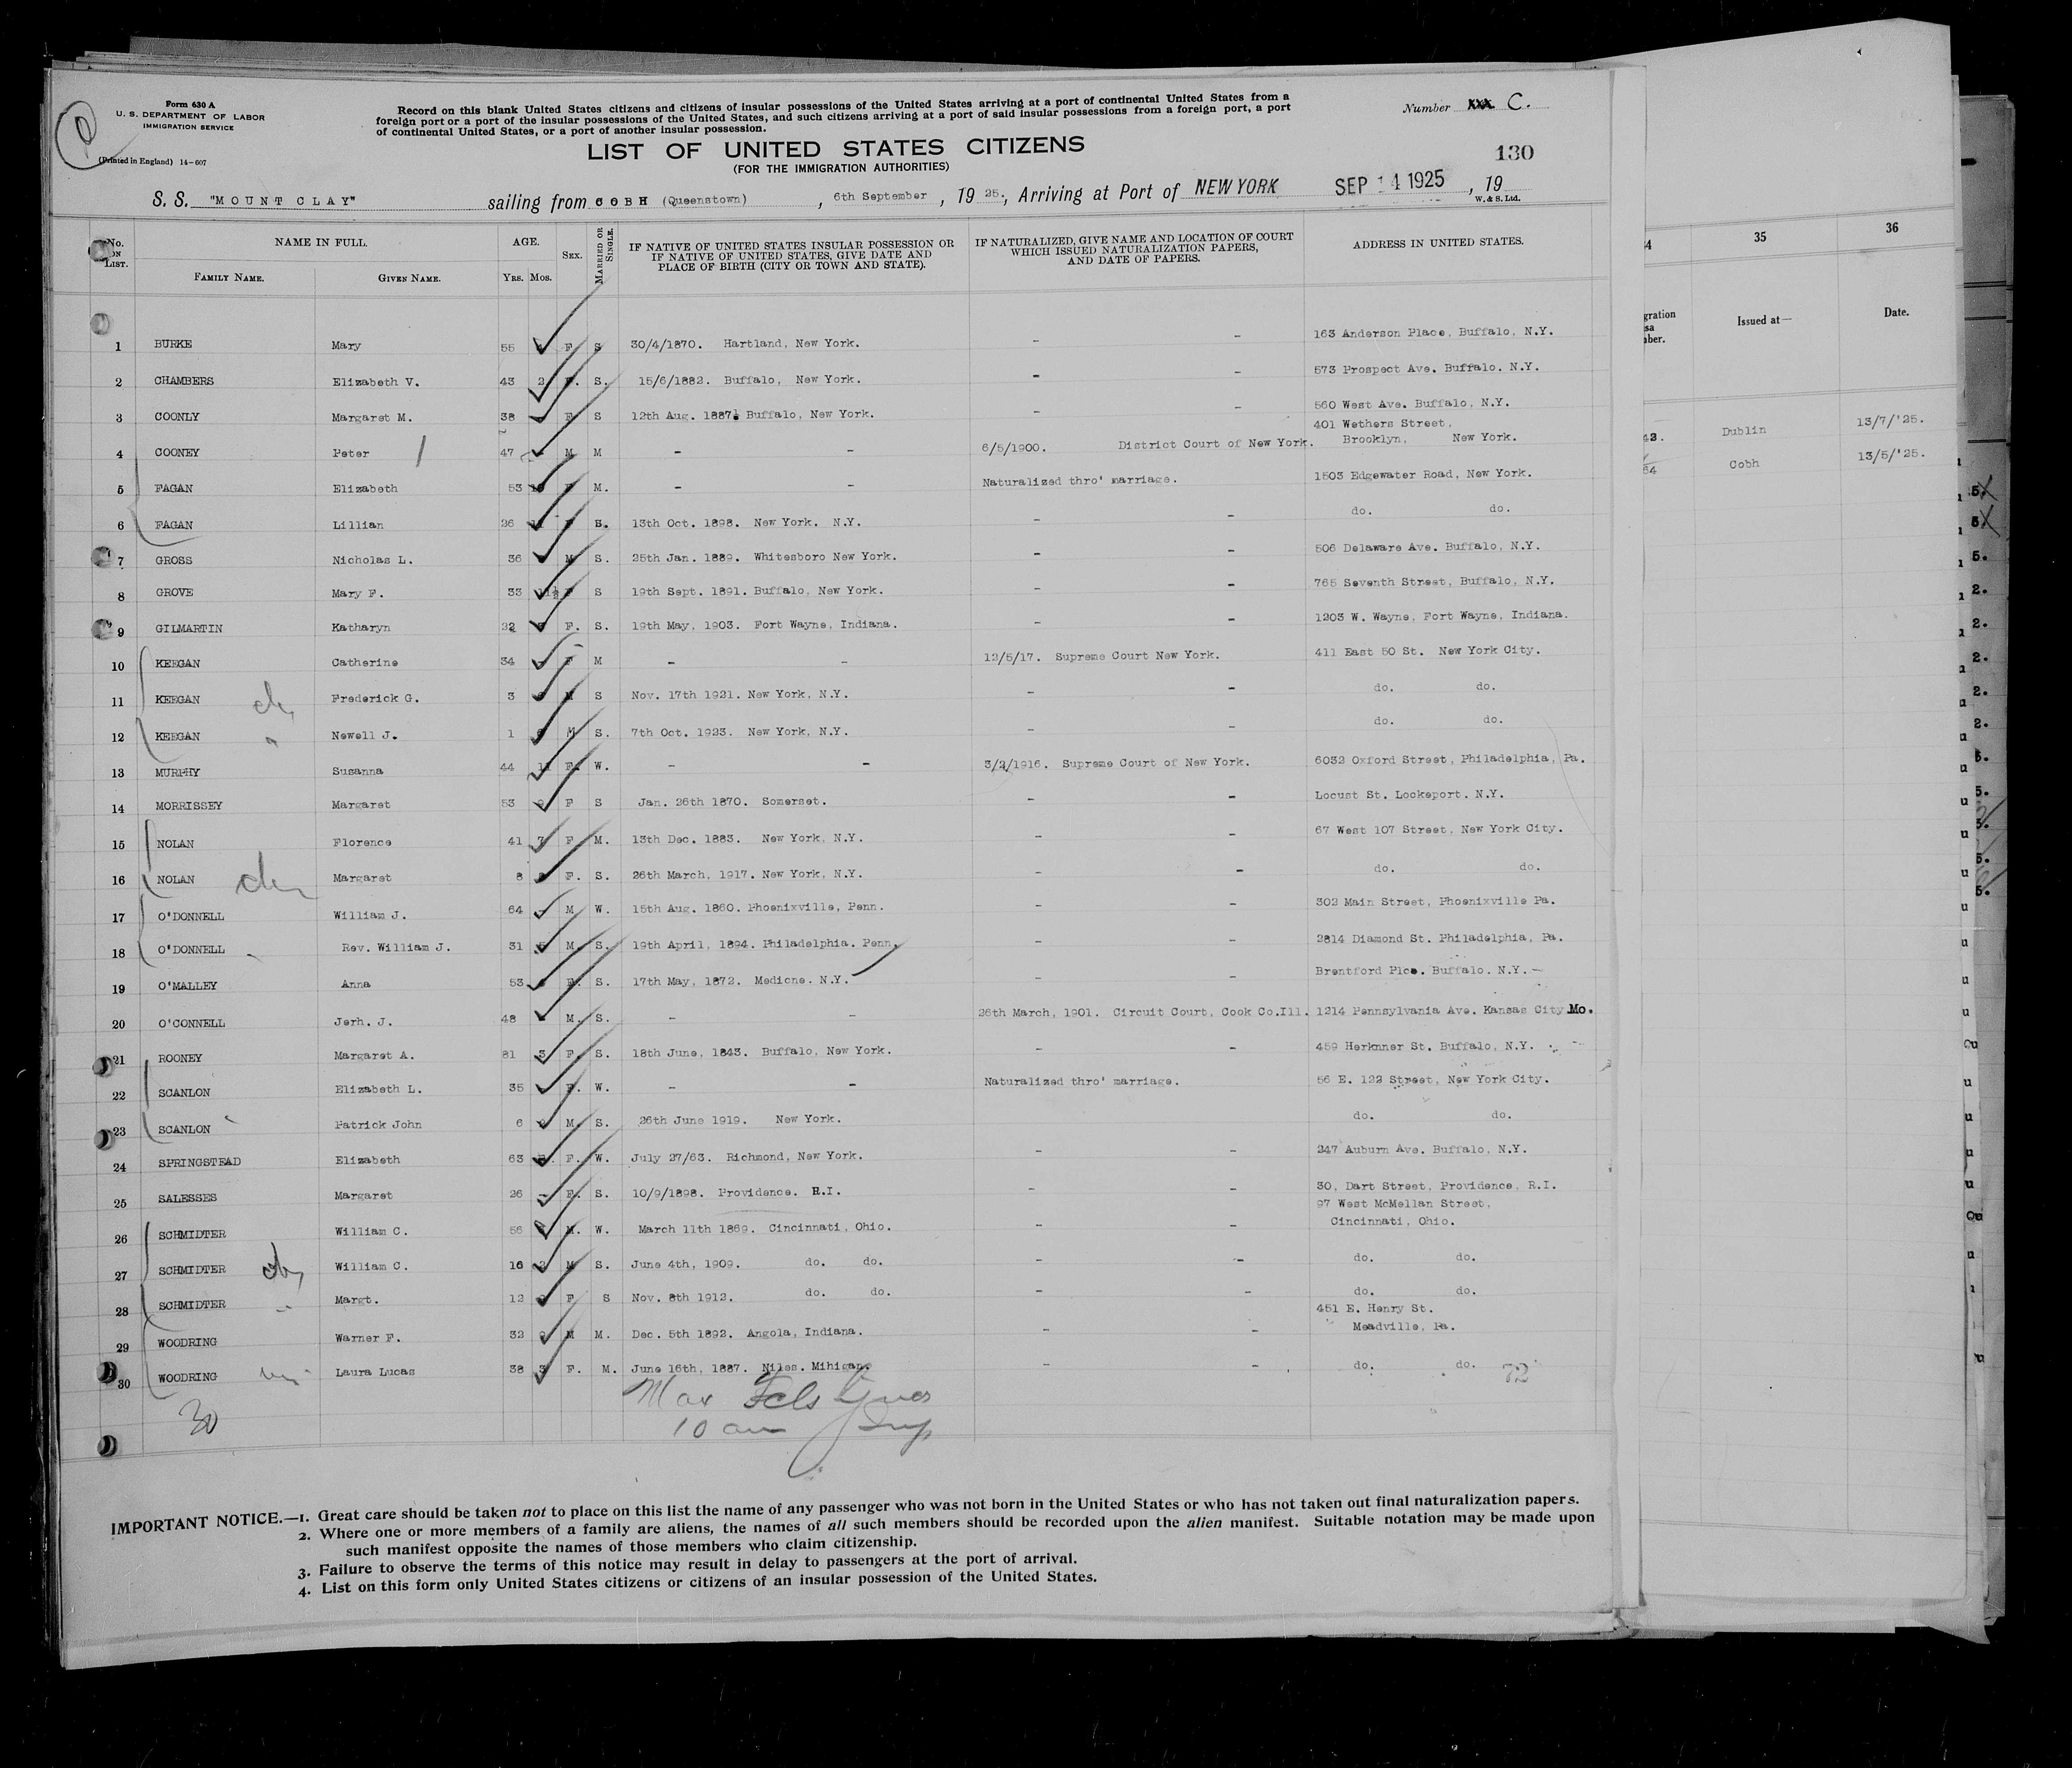 Form 630 A
U. S. DEPARTMENT OF LABOR
IMMIGRATION SERVICE
(Printed in England) 14-607
Record on this blank United States citizens and citizens of insular possessions of the United States arriving at a port of continental United States from a
foreign port or a port of the insular possessions of the United States, and such citizens arriving at a port of said insular possessions from a foreign port, a port
of continental United States, or a port of another insular possession.
Number xxx C.
LIST OF UNITED STATES CITIZENS
(FOR THE IMMIGRATION AUTHORITIES)
130
S. S. "MOUNT CLAY" sailing from COBH (Queenstown), 6th September, 19 25., Arriving at Port of NEW YORK SEP 14 1925, 19
W. & S. Ltd.
No. ON LIST. NAME IN FULL. AGE. SEX. MARRIED OR SINGLE. IF NATIVE OF UNITED STATES INSULAR POSSESSION OR IF NATIVE OF UNITED STATES, GIVE DATE AND PLACE OF BIRTH (CITY OR TOWN AND STATE). IF NATURALIZED, GIVE NAME AND LOCATION OF COURT WHICH ISSUED NATURALIZATION PAPERS, AND DATE OF PAPERS. ADDRESS IN UNITED STATES.
FAMILY NAME. GIVEN NAME. YRS. MOS.
1 BURKE Mary 55 F S 30/4/1870. Hartland, New York. - - 163 Anderson Place, Buffalo, N.Y.
2 CHAMBERS Elizabeth V. 43 2 F. S. 15/6/1882. Buffalo, New York. - - 573 Prospect Ave. Buffalo. N.Y.
3 COONLY Margaret M. 38 F S 12th Aug. 1887. Buffalo, New York. - - 560 West Ave. Buffalo, N.Y.
4 COONEY Peter 47 M M - - 6/5/1900. District Court of New York. 401 Wethers Street, Brooklyn, New York.
5 FAGAN Elizabeth 53 F M. - - Naturalized thro' marriage. 1503 Edgewater Road, New York.
6 FAGAN Lillian 26 11 F S. 13th Oct. 1898. New York. N.Y. - - do. do.
7 GROSS Nicholas L. 36 M S. 25th Jan. 1889. Whitesboro New York. - - 506 Delaware Ave. Buffalo, N.Y.
8 GROVE Mary F. 33 F S 19th Sept. 1891. Buffalo, New York. - - 765 Seventh Street, Buffalo, N.Y.
9 GILMARTIN Katharyn 22 F. S. 19th May, 1903. Fort Wayne, Indiana. - - 1203 W. Wayne, Fort Wayne, Indiana.
10 KEEGAN Catherine 34 F M - - 12/5/17. Supreme Court New York. 411 East 50 St. New York City.
11 KEEGAN Frederick G. 3 M S Nov. 17th 1921. New York, N.Y. - - do. do.
12 KEEGAN Newell J. 1 M S. 7th Oct. 1923. New York, N.Y. - - do. do.
13 MURPHY Susanna 44 11 F. W. - - 3/2/1916. Supreme Court of New York. 6032 Oxford Street, Philadelphia, Pa.
14 MORRISSEY Margaret 53 F S Jan. 26th 1870. Somerset. - - Locust St. Lockeport. N.Y.
15 NOLAN Florence 41 7 F M. 13th Dec. 1883. New York, N.Y. - - 67 West 107 Street, New York City.
16 NOLAN Margaret 8 F. S. 26th March, 1917. New York, N.Y. - - do. do.
17 O'DONNELL William J. 64 M W. 15th Aug. 1860. Phoenixville, Penn. - - 302 Main Street, Phoenixville Pa.
18 O'DONNELL Rev. William J. 31 M. S. 19th April, 1894. Philadelphia. Penn. - - 2814 Diamond St. Philadelphia, Pa.
19 O'MALLEY Anna 53 F. S. 17th May, 1872. Medicne. N.Y. - - Brentford Plce. Buffalo. N.Y.
20 O'CONNELL Jerh. J. 48 M. S. - - 26th March, 1901. Circuit Court, Cook Co.Ill. 1214 Pennsylvania Ave. Kansas City.Mo.
21 ROONEY Margaret A. 81 3 F. S. 18th June, 1843. Buffalo, New York. - - 459 Herknner St. Buffalo, N.Y.
22 SCANLON Elizabeth L. 35 F. W. - - Naturalized thro' marriage. 56 E. 122 Street, New York City.
23 SCANLON Patrick John 6 M. S. 26th June 1919. New York. do. do.
24 SPRINGSTEAD Elizabeth 63 F. W. July 27/63. Richmond, New York. - - 247 Auburn Ave. Buffalo, N.Y.
25 SALESSES Margaret 26 F. S. 10/9/1898. Providence. R.I. - - 30, Dart Street, Providence, R.I.
26 SCHMIDTER William C. 56 M. W. March 11th 1869. Cincinnati, Ohio. - - 97 West McMellan Street, Cincinnati, Ohio.
27 SCHMIDTER William C. 16 M S. June 4th, 1909. do. do. - - do. do.
28 SCHMIDTER Margt. 12 F S Nov. 8th 1912. do. do. - - do. do.
29 WOODRING Warner F. 32 9 M M. Dec. 5th 1892. Angola, Indiana. - - 451 E. Henry St. Meadville, Pa.
30 WOODRING Laura Lucas 38 3 F. M. June 16th, 1887. Niles. Mihigan. - - do. do. 72
30
10 am
IMPORTANT NOTICE.—1. Great care should be taken not to place on this list the name of any passenger who was not born in the United States or who has not taken out final naturalization papers.
2. Where one or more members of a family are aliens, the names of all such members should be recorded upon the alien manifest. Suitable notation may be made upon
such manifest opposite the names of those members who claim citizenship.
3. Failure to observe the terms of this notice may result in delay to passengers at the port of arrival.
4. List on this form only United States citizens or citizens of an insular possession of the United States.
35 36
Issued at— Date.
Dublin 13/7/'25.
Cobh 13/5/'25.